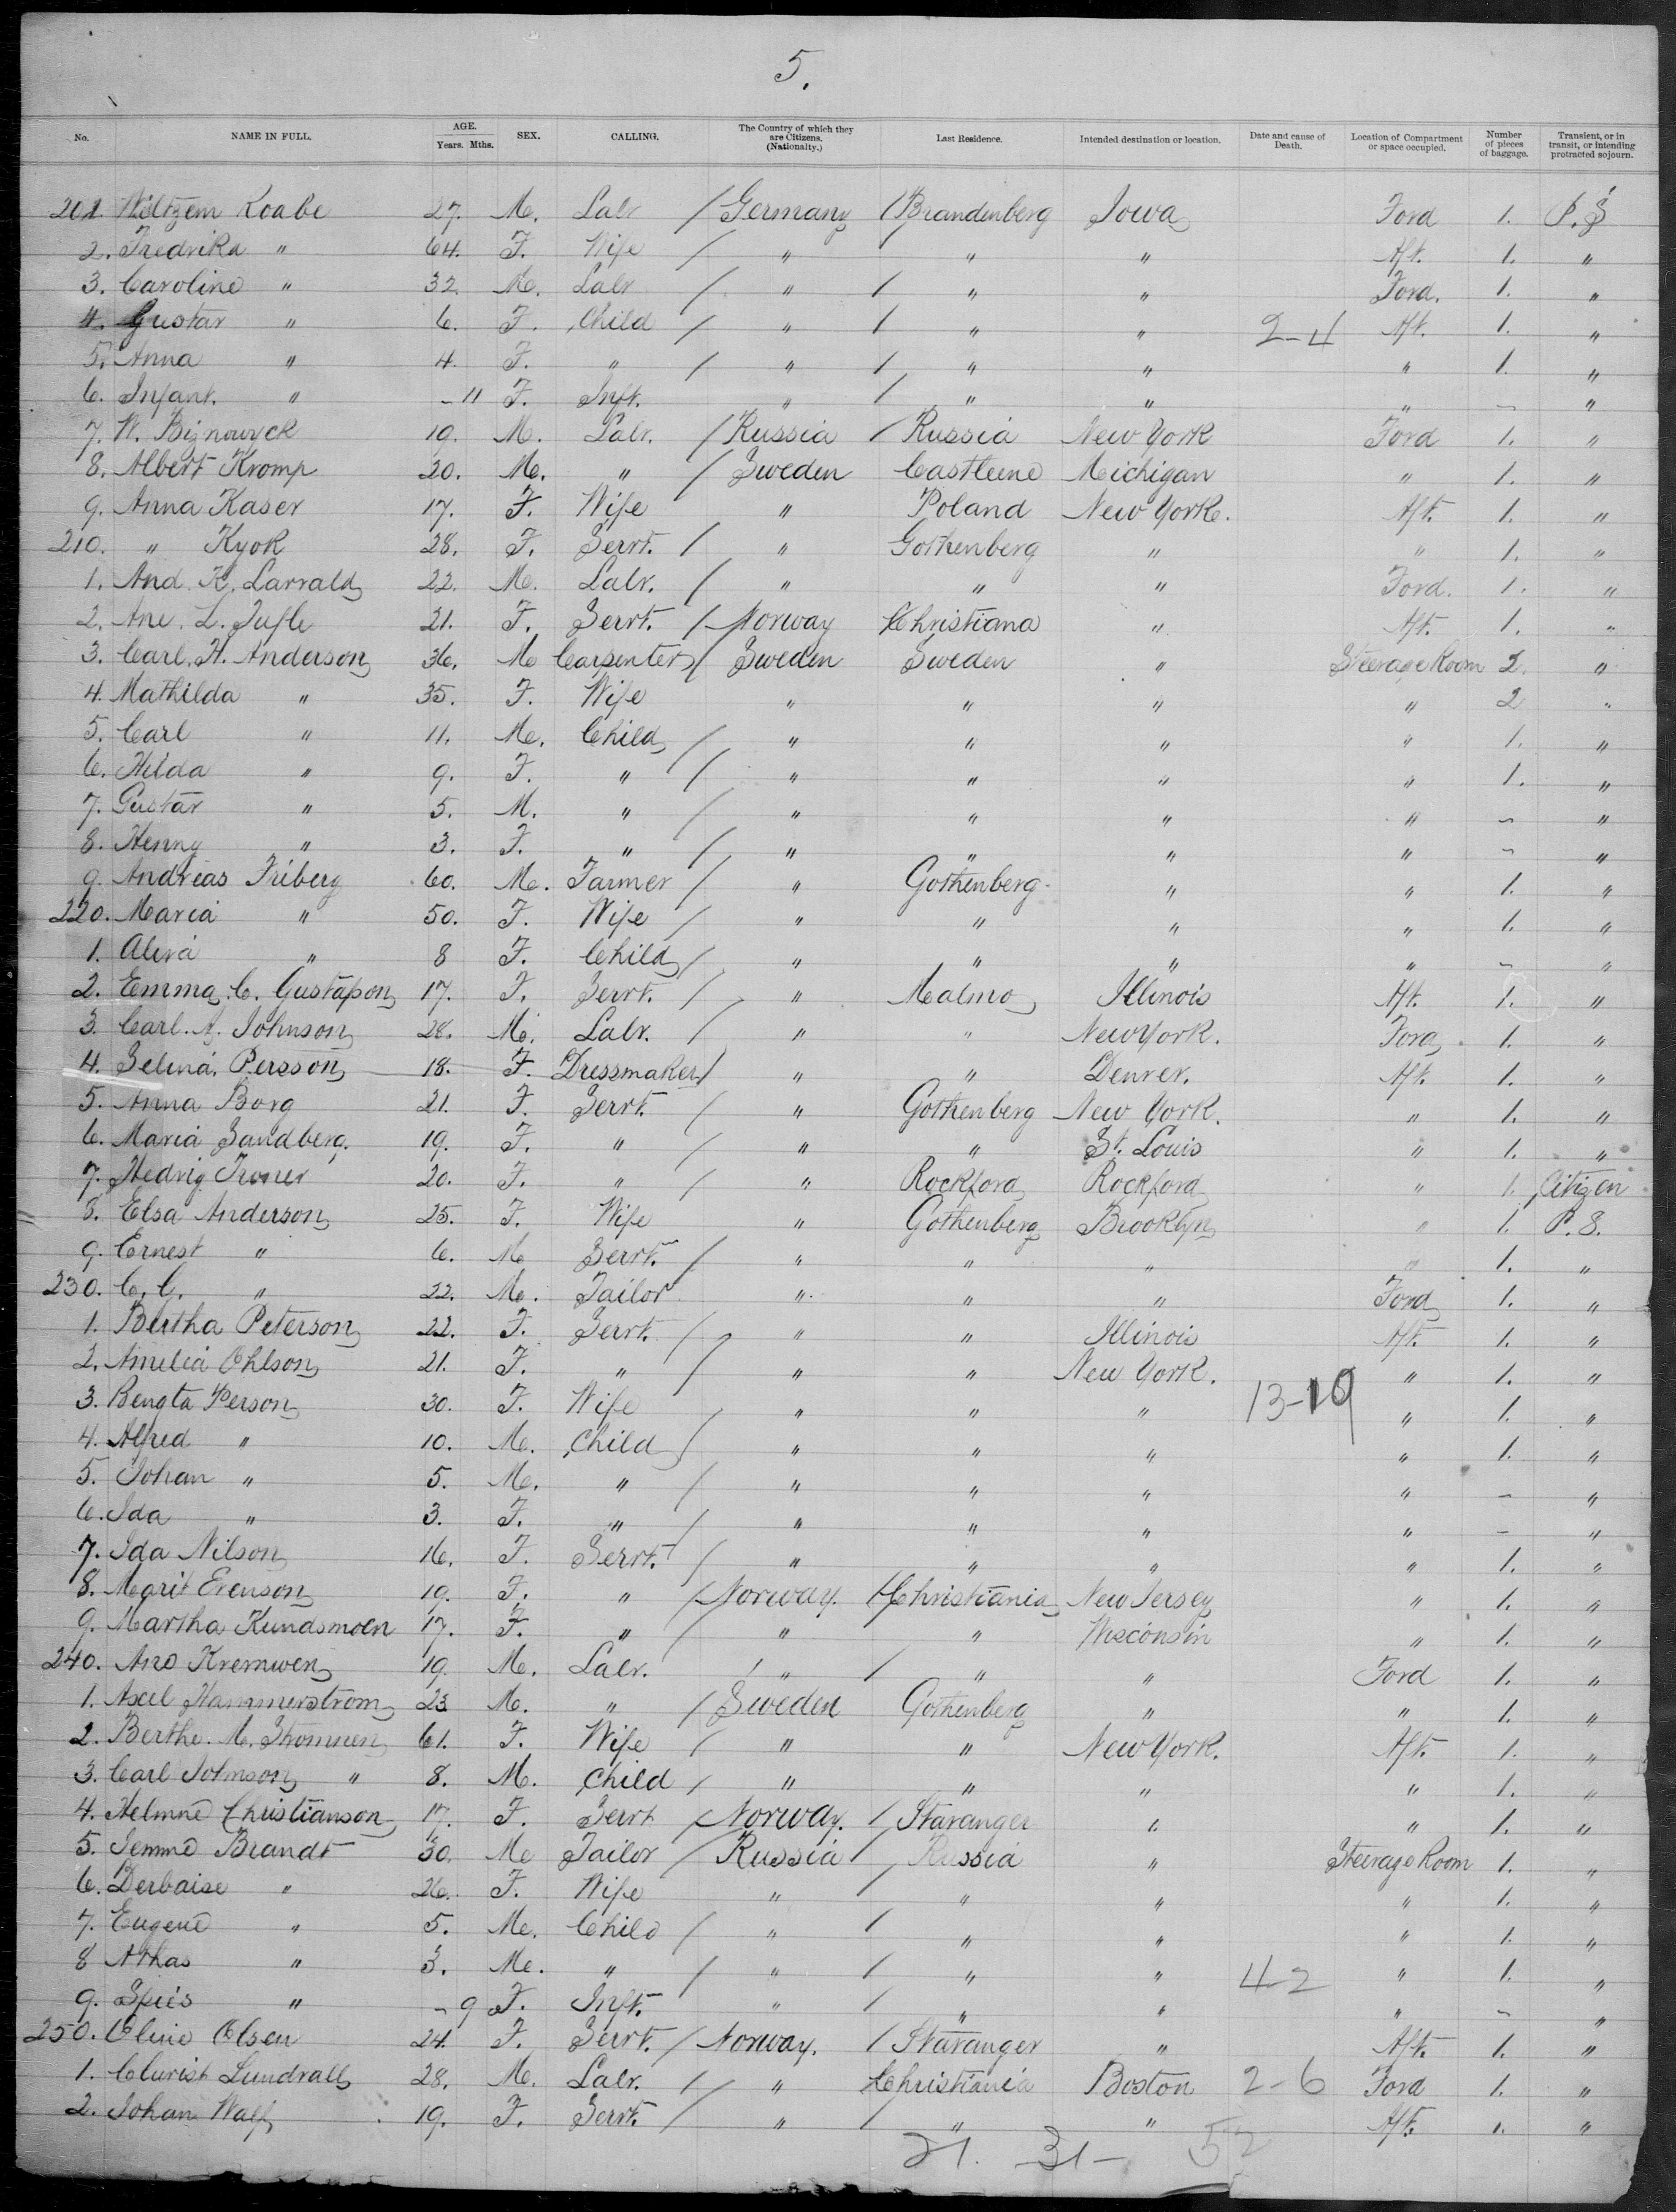 5.
No. NAME IN FULL. AGE. Years. Mths. SEX. CALLING. The Country of which they are Citizens. (Nationality.) Last Residence. Intended destination or location. Date and cause of Death. Location of Compartment or space occupied. Number of pieces of baggage. Transient, or in transit, or intending protracted sojourn.
201. Wiltzem Koabe 27. M. Labr / Germany / Brandenberg Iowa Ford 1. P.S
2. Fredrika " 64. F. Wife / " " " Aft. 1. "
3. Caroline " 32. M. Labr / " / " " Ford. 1. "
4. Gustav " 6. F. Child / " / " " 2-4 Aft. 1. "
5. Anna " 4. F. " / " / " " " 1. "
6. Infant. " - 11 F. Inft. " / " " " - "
7. W. Bignowyck 19. M. Labr. / Russia / Russia New York Ford 1. "
8. Albert Kromp 20. M. " / Sweden Castleene Michigan " 1. "
9. Anna Kaser 17. F. Wife " Poland New York. Aft. 1. "
210. " Kyok 28. F. Servt. / " Gothenberg " " 1. "
1. And. K. Larvald 22. M. Labr. / " " " Ford. 1. "
2. Ane. L. Jufle 21. F. Servt. / Norway Christiana " Aft. 1. "
3. Carl. H. Anderson 36. M Carpenter / Sweden Sweden " Steerage Room 2. "
4. Mathilda " 35. F. Wife " " " " 2 "
5. Carl " 11. M. Child / " " " " 1. "
6. Hilda " 9. F. " / " " " " 1. "
7. Gustav " 5. M. " / " " " " - "
8. Henny " 3. F. " / " " " " - "
9. Andreas Friberg 60. M. Farmer / " Gothenberg " " 1. "
220. Maria " 50. F. Wife / " " " " 1. "
1. Alivia " 8 F. Child / " " " " - "
2. Emma. C. Gustafson 17. F. Servt. / " Malmo Illinois Aft. 1. "
3. Carl. A. Johnson 28. M. Labr. / " " New York. Ford 1. "
4. Selma. Persson 18. F. Dressmaker / " " Denver. Aft. 1. "
5. Anna Borg 21. F. Servt. / " Gothenberg New York. " 1. "
6. Maria Sandberg. 19. F. " / " " St. Louis " 1. "
7. Hedvig Troner 20. F. " / " Rockford Rockford " 1. Citizen
8. Elsa Anderson 25. F. Wife " Gothenberg Brooklyn " 1. P.S.
9. Ernest " 6. M Servt. / " " " " 1. "
230. C. G. " 22. M. Tailor " " " Ford 1. "
1. Bertha Peterson 22. F. Servt. / " " Illinois Aft. 1. "
2. Amelia Ohlson 21. F. " / " " New York. " 1. "
3. Bengta Person 30. F. Wife " " " 13-19 " 1. "
4. Alfred " 10. M. Child / " " " " 1. "
5. Johan " 5. M. " / " " " " - "
6. Ida " 3. F. " / " " " " - "
7. Ida Nilson 16. F. Servt. / " " " " 1. "
8. Marit Evenson 19. F. " / Norway. / Christiania New Jersey " 1. "
9. Martha Kundsmoen 17. F. " / " " Wisconsin " 1. "
240. Ano Kremwen 19. M. Labr. / " / " " Ford 1. "
1. Axel Hammerstrom 23 M. " / Sweden Gothenberg " " 1. "
2. Berthe. M. Thomnen 61. F. Wife / " " New York. Aft. 1. "
3. Carl Johnson " 8. M. Child / " " " " 1. "
4. Helmne Christianson 17. F. Servt / Norway. / Stavanger " " 1. "
5. Semme Brandt 30. M Tailor / Russia / Russia " Steerage Room 1. "
6. Derbaise " 26. F. Wife " " " " 1. "
7. Eugene " 5. M. Child / " / " " " 1. "
8 Athas " 3. M. " / " / " " 4-2 " 1. "
9. Spies " - 9 F. Inft. " / " " " - "
250. Oline Olsen 24. F. Servt. / Norway. / Stavanger " Aft. 1. "
1. Chrrist Lundvall 28. M. Labr. / " Christiania Boston 2-6 Ford 1. "
2. Johan Walf 19. F. Servt. / " / " " Aft. 1. "
21. 31- 52